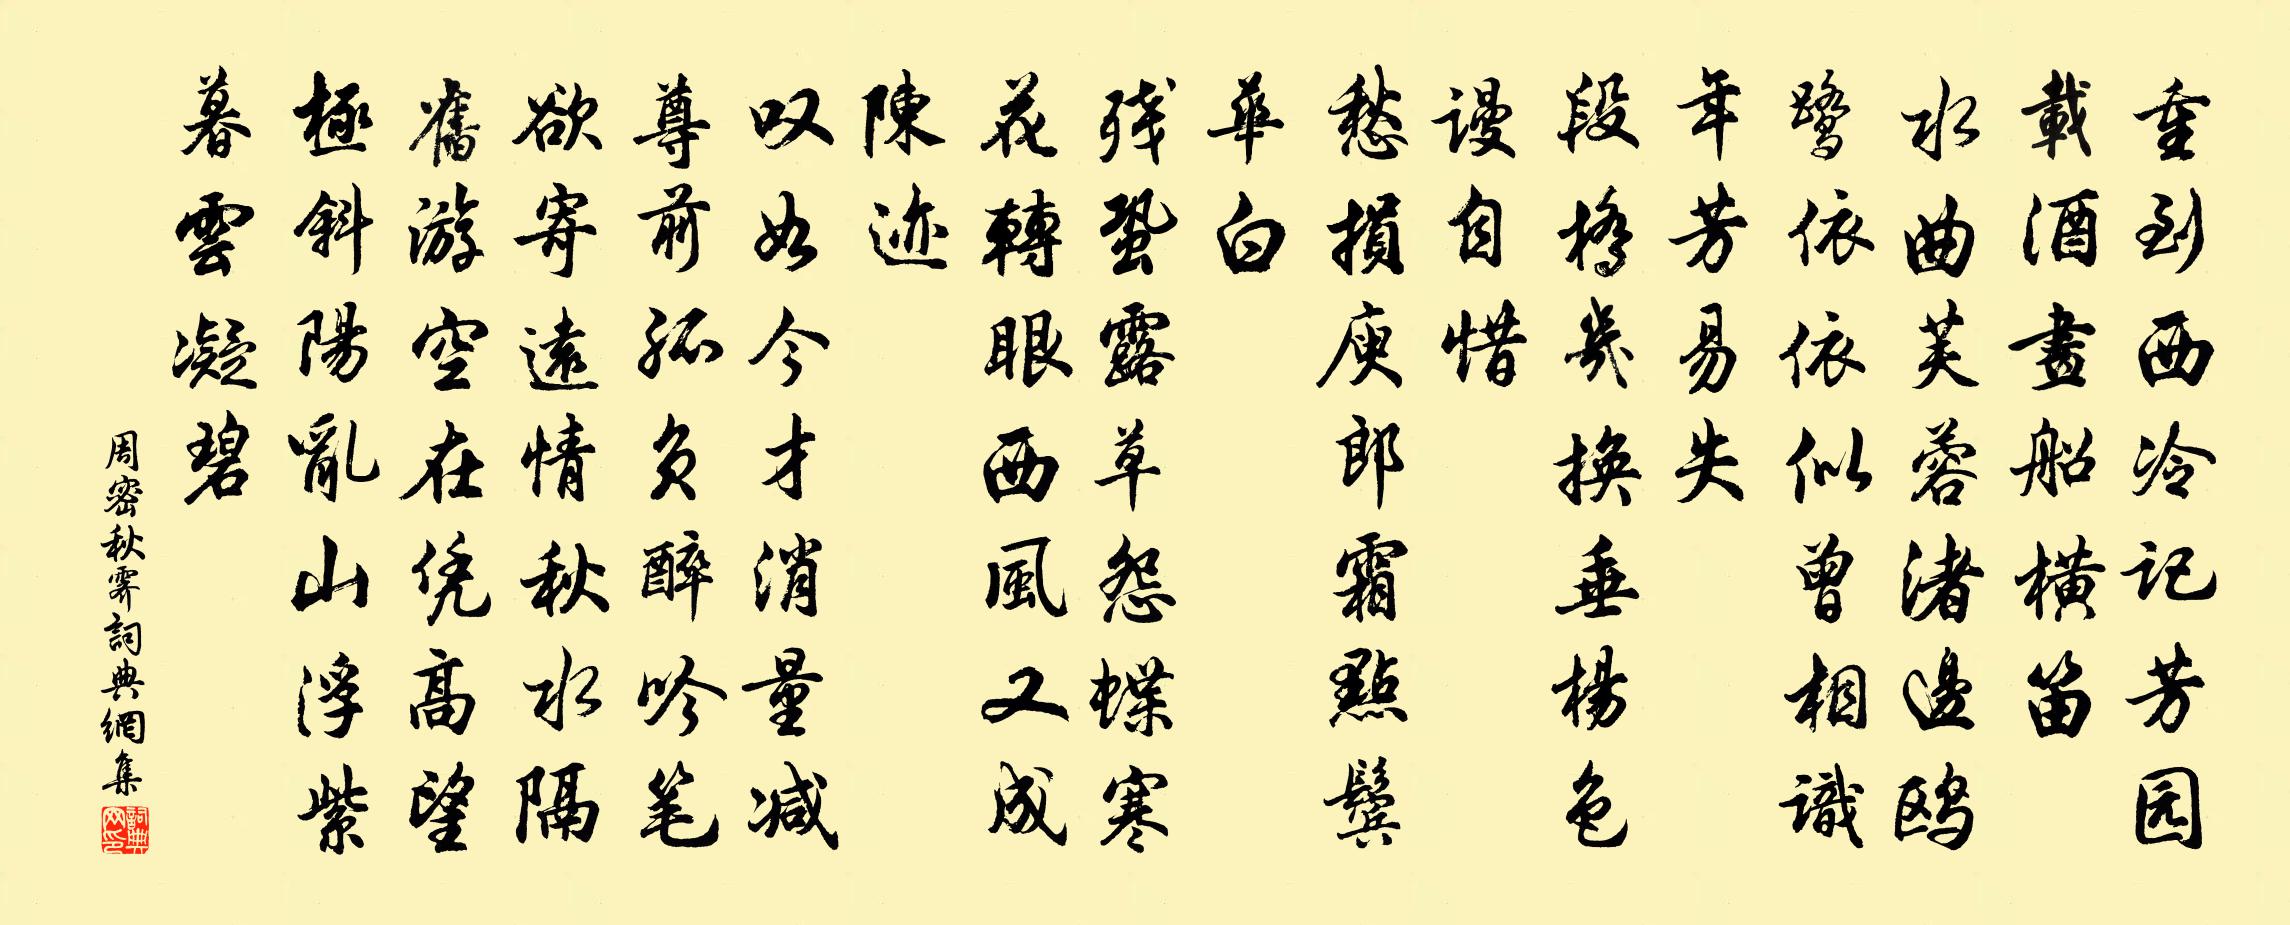 重到西泠记芳园
載酒畫船橫笛
水曲芙蓉渚邊鸥
鹭依依似曾相識
年芳易失
段橋幾換垂楊色
谩自惜
愁損庾郎霜點鬓
華白
残蛩露草怨蝶寒
花轉眼西風又成
陳迹
叹如今才消量减
尊前孤负醉吟笔
欲寄遠情秋水隔
舊游空在凭高望
極斜陽亂山浮紫
暮雲凝碧
周密秋霽詞典網集
詞典网印